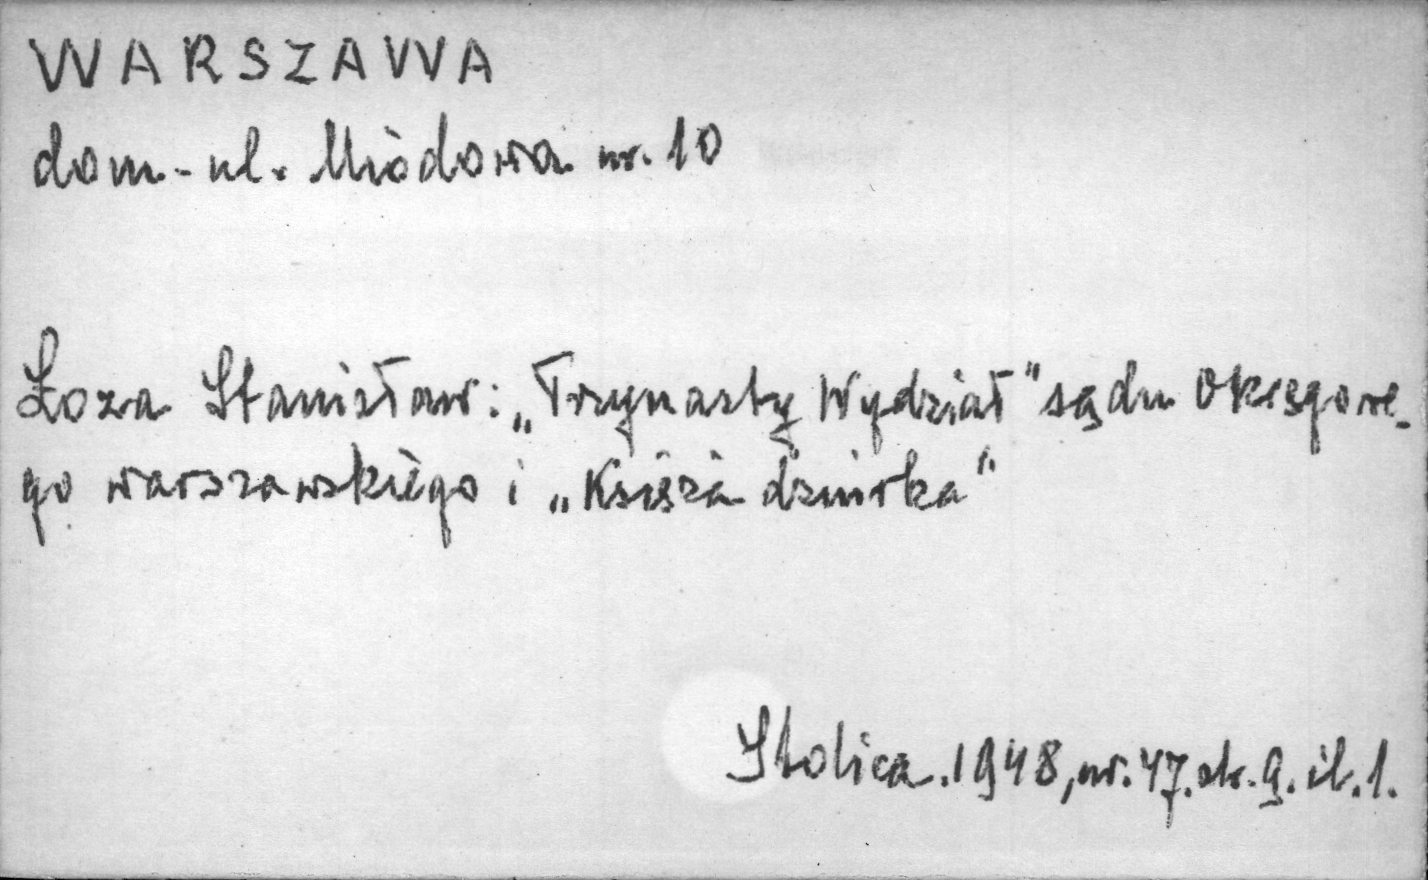 WARSZAWA
dom - ul. Miodowa nr. 10
Łoza Stanisław: „Trzynasty Wydział" sądu Okręgowe-
go warszawskiego i „Księża dziurka"
Stolica. 1948, nr. 47. str. 9. il. 1.